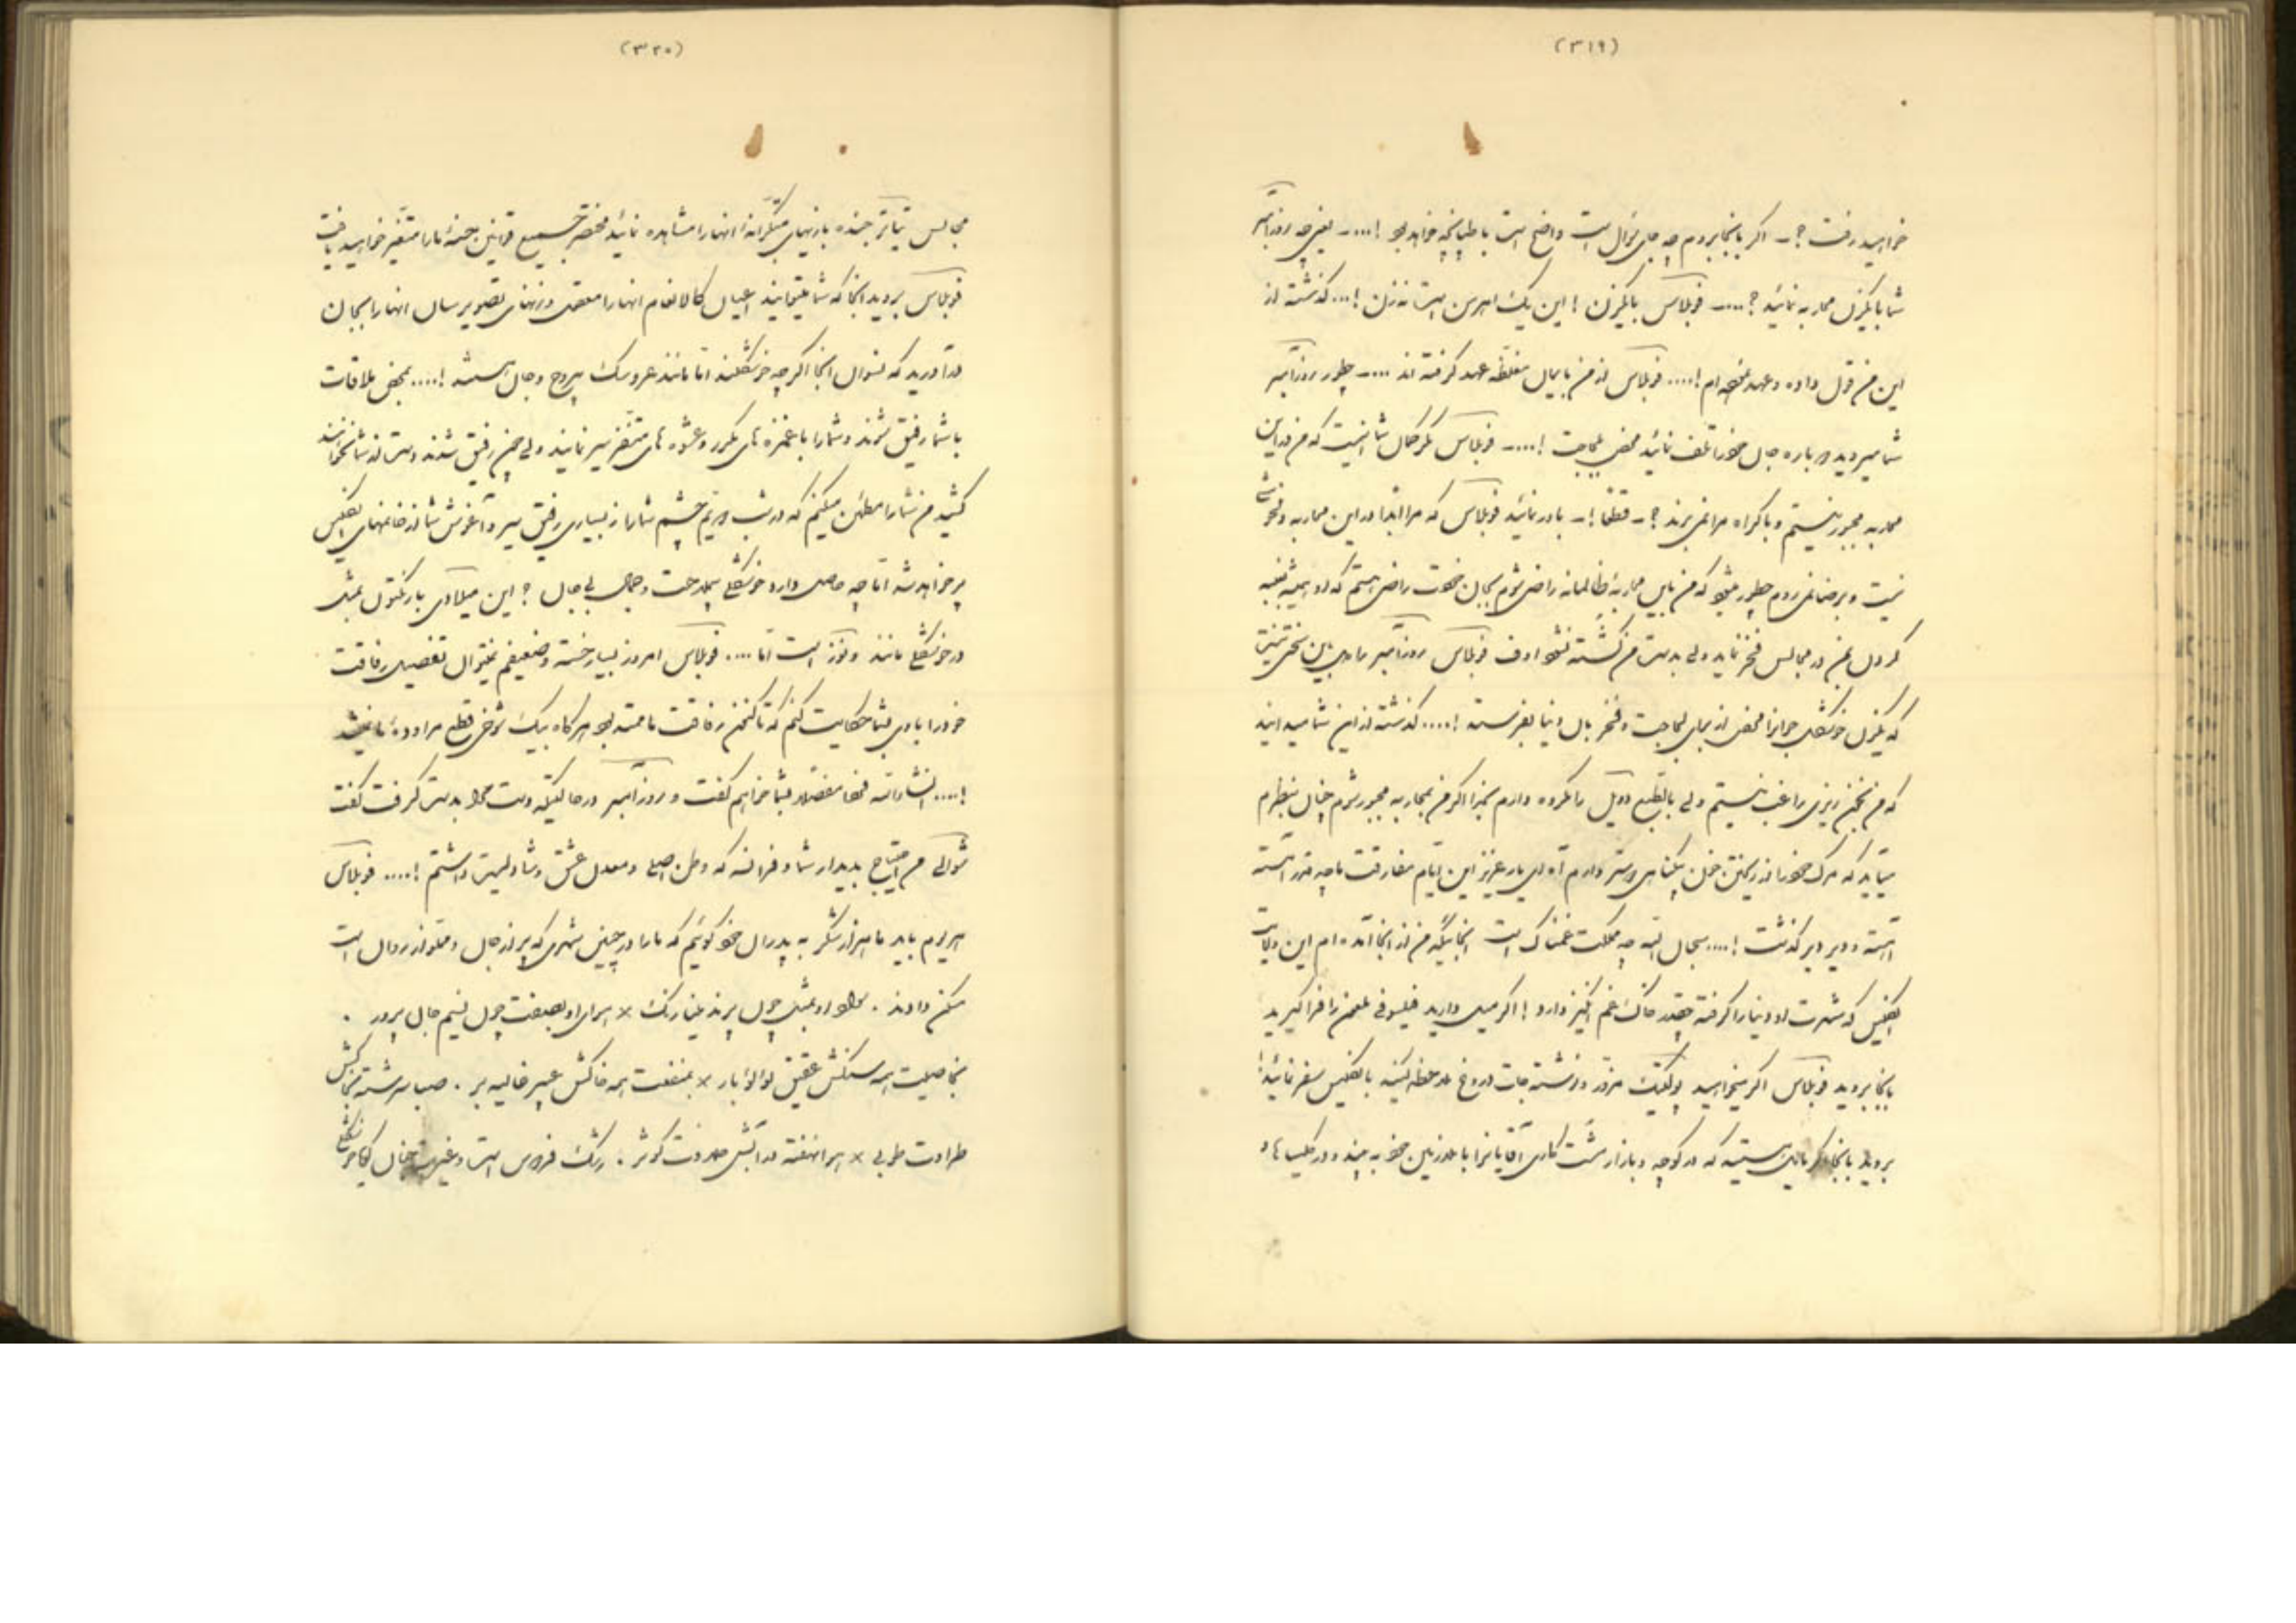 (۳۱۹)
خواهید رفت ؟ ـ اگر بانجا بروم چه جای سؤال است واضح است با طپانچه خواهد بود !.... ـ یعنی چه روزآمبر
شما با یکزن محاربه نمائید ؟ .... ـ فوبلاس با یکزن ! این یک اهرمن است نه زن !... گذشته از
این من قول داده و عهد نموده ام !.... فوبلاس از من بایمان مغلظه عهد گرفته اند .... ـ چطور روزآمبر
شما میروید دوباره جان خود را تلف نمائید محض لجاجت !.... ـ فوبلاس مگر خیال شما اینست که من در این
محاربه مجبور نیستم و باکراه مرا نمی برند ؟ ـ قطعا ! ـ باور نمائید فوبلاس که مرا ابدا در این محاربه دلخوشی
نیست و برضا نمی روم چطور میشود که من باین محاربه ظالمانه راضی شوم بجان خودت راضی هستم که او همیشه بغلبه
کردن بمن در مجالس فخر نماید ولی بدست من کشته نشود اوف فوبلاس روزآمبر را
که یکزن خوشگل جوانرا محض از برای لجاجت و فخر بآن دنیا بفرستد !.... گذشته از این شما میدانید
که من بخون ریزی راغب نیستم ولی بالطبع دویل را مکروه دارم بخدا اگر من بمحاربه مجبور شوم چنان بنظرم
میآید که مرگ خود را از ریختن خون بیگناهی دوستر دارم آه ای یار عزیز این ایام مفارقت ما چه قدر آهسته
آهسته و دیر دیر گذشت !.... سبحان الله چه مملکت غمناک است آنجائیکه من از آنجا آمده ام این ولایت
انگلیس که شهرت او دنیا را گرفته چقدر خاک غم انگیز دارد ! اگر میل دارید فیلسوفی ملعون را فرا گیرید
بانجا بروید فوبلاس اگر میخواهید پولتیک مزور و نوشته جات دروغ ملاحظه کنید بانگلیس سفر نمائید !
بروید بانجا اگر مایل هستید که در کوچه و بازار مشت کاری آقایانرا با ملازمین خود به بینید و در کلیساها و
(۳۲۰)
مجالس تیاتر خنده بازیهای متکرانه آنها را مشاهده نمائید مختصر جمیع قوانین حسنه ما را متغیر خواهید یافت
فوبلاس بروید آنجا که شما میتوانید اعیان کالانعام آنها را معقول و زنهای تصویر سان آنها را بجان
درآورید که نسوان آنجا اگر چه خوشگلند اما مانند عروسک بیروح و جان هستند !.... بمحض ملاقات
با شما رفیق شوند و شما را با غمزه های مکرر و عشوه های متنفر سیر نمایند ولی چون رفیق شدند دست از شما نخواهند
کشید من شما را مطمئن میکنم که در شب دویم چشم شما از بسیاری رفیق سیر و آغوش شما از خانمهای انگلیس
پر خواهد شد اما چه حاصل دارد خوشگلی بیملاحت و جمال بی جان ؟ این میلادی بارنکتون بمثل
در خوشگلی مانند ونوز است اما .... فوبلاس امروز بسیار خسته و ضعیفم نمیتوان تفصیل رفاقت
خود را با وی بشما حکایت کنم که تاکنون رفاقت ما ممتد بود هر گاه بیک شوخی قطع مراوده ما نمیشد
!.... انشاءالله فردا مفصلا بشما خواهم گفت و روزآمبر در حالتیکه دست مرا بدست گرفت گفت
شوالی من احتیاج بدیدار شما و فرانسه که وطن اصلی و معدن عشق و شادیست داشتم !.... فوبلاس
هر دوم باید ما هزار شکر به پدران خود گوئیم که ما را در چنین شهری که پر از جان و مملو از روان است
مسکن دادند . هوای او بمثل چون پرند نیلی رنگ × هوای او بصفت چون نسیم جان پرور .
بخاصیت همه سنگش عقیق لؤلؤبار × بمنفعت همه خاکش عبیر غالیه بر . صبا سرشته بخاکش
طراوت طوبی × هوا نهفته در آبش حلاوت کوثر . رشک فردوس است و غیرت جنان